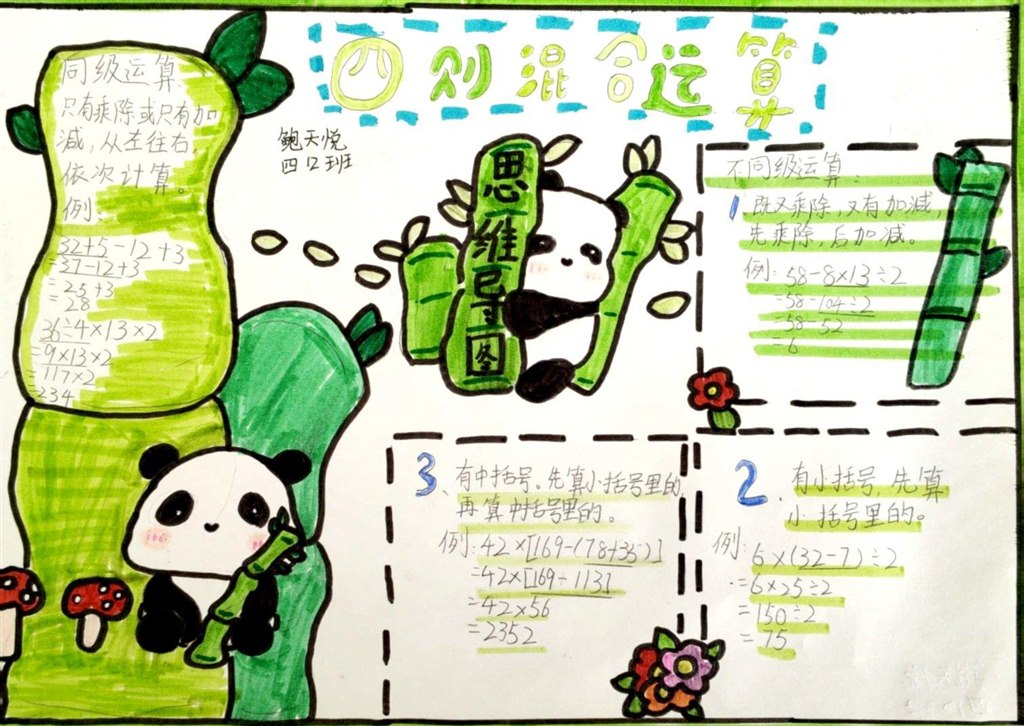 四则混合运算
同级运算
只有乘除或只有加
减,从左往右,
依次计算。
例:
32+5-12+3
=37-12+3
=25+3
=28
36÷4×13×2
=9×13×2
=117×2
=234
鲍天悦
四12班
思维导图
不同级运算
1、既又乘除,又有加减,
先乘除,后加减。
例:58-8×13÷2
=58-104÷2
=58-52
=6
2、有小括号,先算
小括号里的。
例:6×(32-7)÷2
=6×25÷2
=150÷2
=75
3、有中括号。先算小括号里的,
再算中括号里的。
例:42×[169-(78+35)]
=42×[169-113]
=42×56
=2352